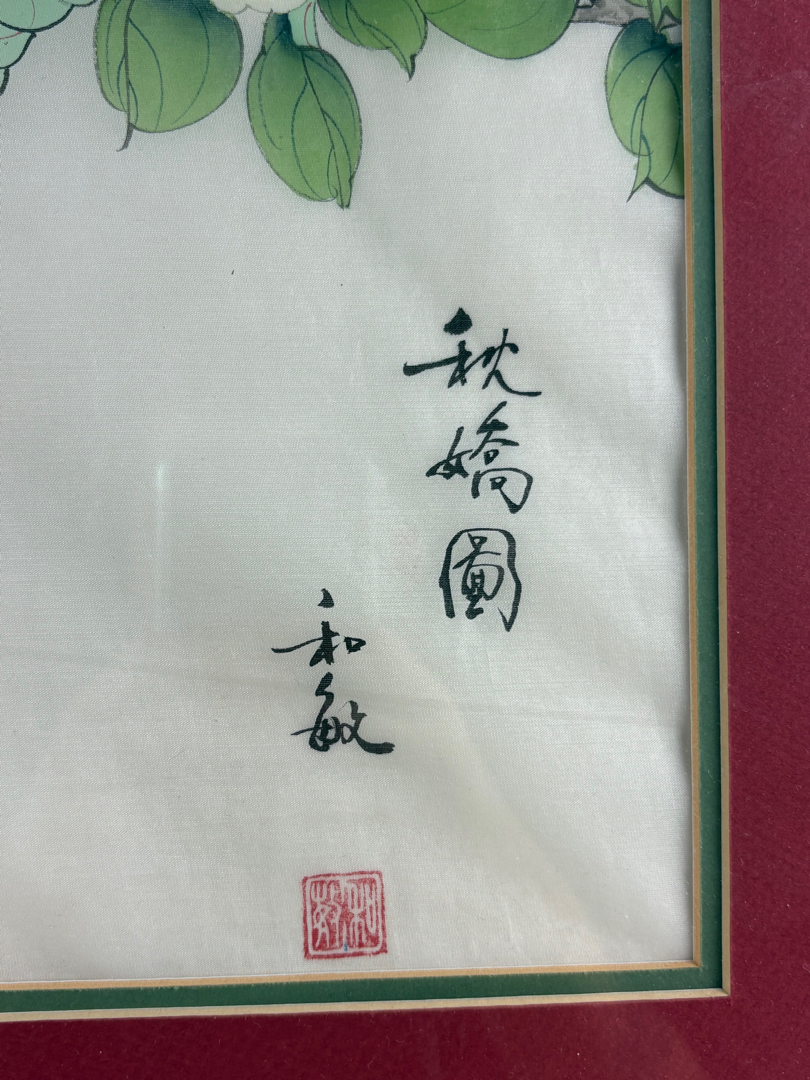 秋嬌圖
和敏
和敏